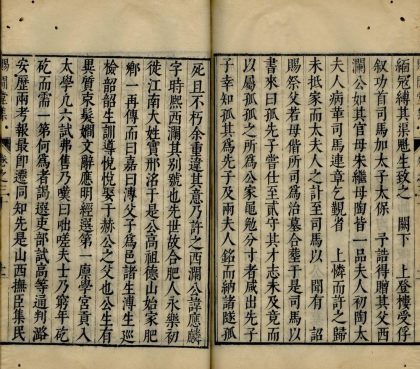 緬冠縛其渠魁生致之　闕下　上登樓受俘
叙功首司馬加太子太保　予誥得贈其父西
瀾公如其官母朱繼母陶皆一品夫人初陶太
夫人病革司馬連章乞觀省　上憐而許之歸
未抵家而太夫人之訃至司馬以　聞有　詔
賜祭父若母偕所司為治墓合塟于是司馬以
書來曰孤先子嘗仕至貳守其才志未及竟而
以屬孤孤之所為公家龜勉分寸者咸出先子
子幸知孤其為先子及兩夫人銘而納諸隧孤
死且不朽余重違其意乃許之西瀾公諱應麟
字時熙西瀾其別號也先世故合肥人永樂初
徙江南大姓實邢洺于是公高祖德山始家肥
鄉一再傳而曰嘉曰溥父子為邑諸生溥生巡
檢韶韶生訓導悅悅娶于郝公之父也公生有
異質束髮嫺文辭應明經選第一廩學宮貢入
太學凡六試弗售乃嘆曰咄嗟夫士乃窮年矻
矻而需一第何為者謁選吏部試高等通判潞
安歷兩考報最即遷同知先是山西撫臣集民